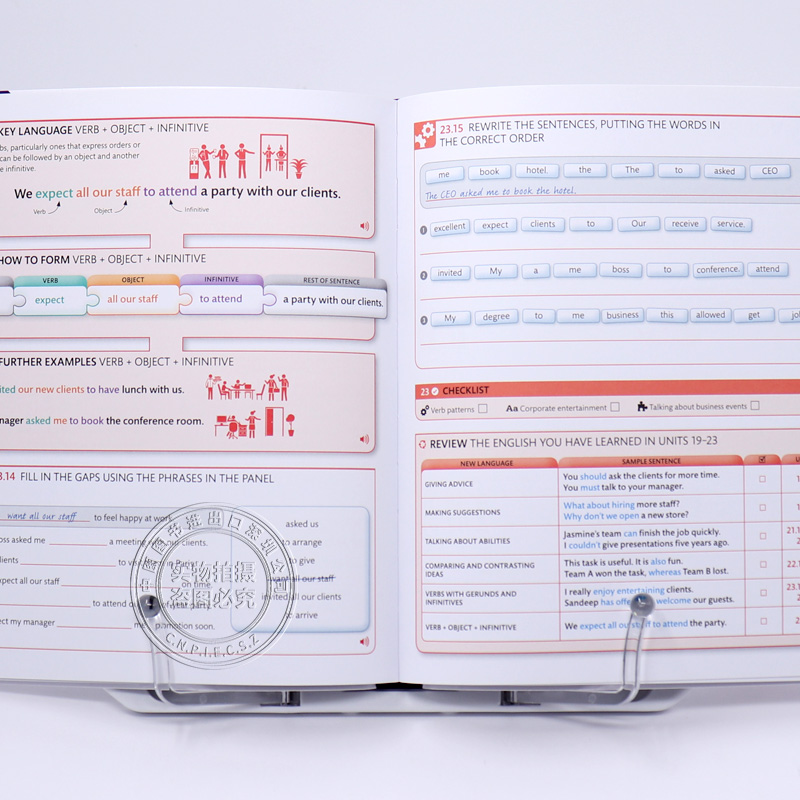 KEY LANGUAGE VERB + OBJECT + INFINITIVE
bs, particularly ones that express orders or
can be followed by an object and another
e infinitive.
We expect all our staff to attend a party with our clients.
Verb Object Infinitive
HOW TO FORM VERB + OBJECT + INFINITIVE
VERB OBJECT INFINITIVE REST OF SENTENCE
expect all our staff to attend a party with our clients.
FURTHER EXAMPLES VERB + OBJECT + INFINITIVE
ited our new clients to have lunch with us.
nager asked me to book the conference room.
3.14 FILL IN THE GAPS USING THE PHRASES IN THE PANEL
want all our staff to feel happy at work.
oss asked me a meeting with our clients.
lients to vis
xpect all our staff on time.
to attend ou of year party.
ect my manager me promotion soon.
asked us
to arrange
to give
want all our staff
invited all our clients
to arrive
23.15 REWRITE THE SENTENCES, PUTTING THE WORDS IN
THE CORRECT ORDER
me book hotel. the The to asked CEO
The CEO asked me to book the hotel.
1 excellent expect clients to Our receive service.
2 invited My a me boss to conference. attend
3 My degree to me business this allowed get jo
23 CHECKLIST
Verb patterns Aa Corporate entertainment Talking about business events
REVIEW THE ENGLISH YOU HAVE LEARNED IN UNITS 19-23
NEW LANGUAGE SAMPLE SENTENCE U
GIVING ADVICE You should ask the clients for more time.
You must talk to your manager. 1
MAKING SUGGESTIONS What about hiring more staff?
Why don't we open a new store? 1
TALKING ABOUT ABILITIES Jasmine's team can finish the job quickly.
I couldn't give presentations five years ago. 21.1
COMPARING AND CONTRASTING
IDEAS This task is useful. It is also fun.
Team A won the task, whereas Team B lost. 22.1
VERBS WITH GERUNDS AND
INFINITIVES I really enjoy entertaining clients.
Sandeep has offered to welcome our guests. 23.1
VERB + OBJECT + INFINITIVE We expect all our staff to attend the party. 2
中国图书进出口深圳公司
实物拍摄
盗图必究
C.N.P.I.E.C.S.Z